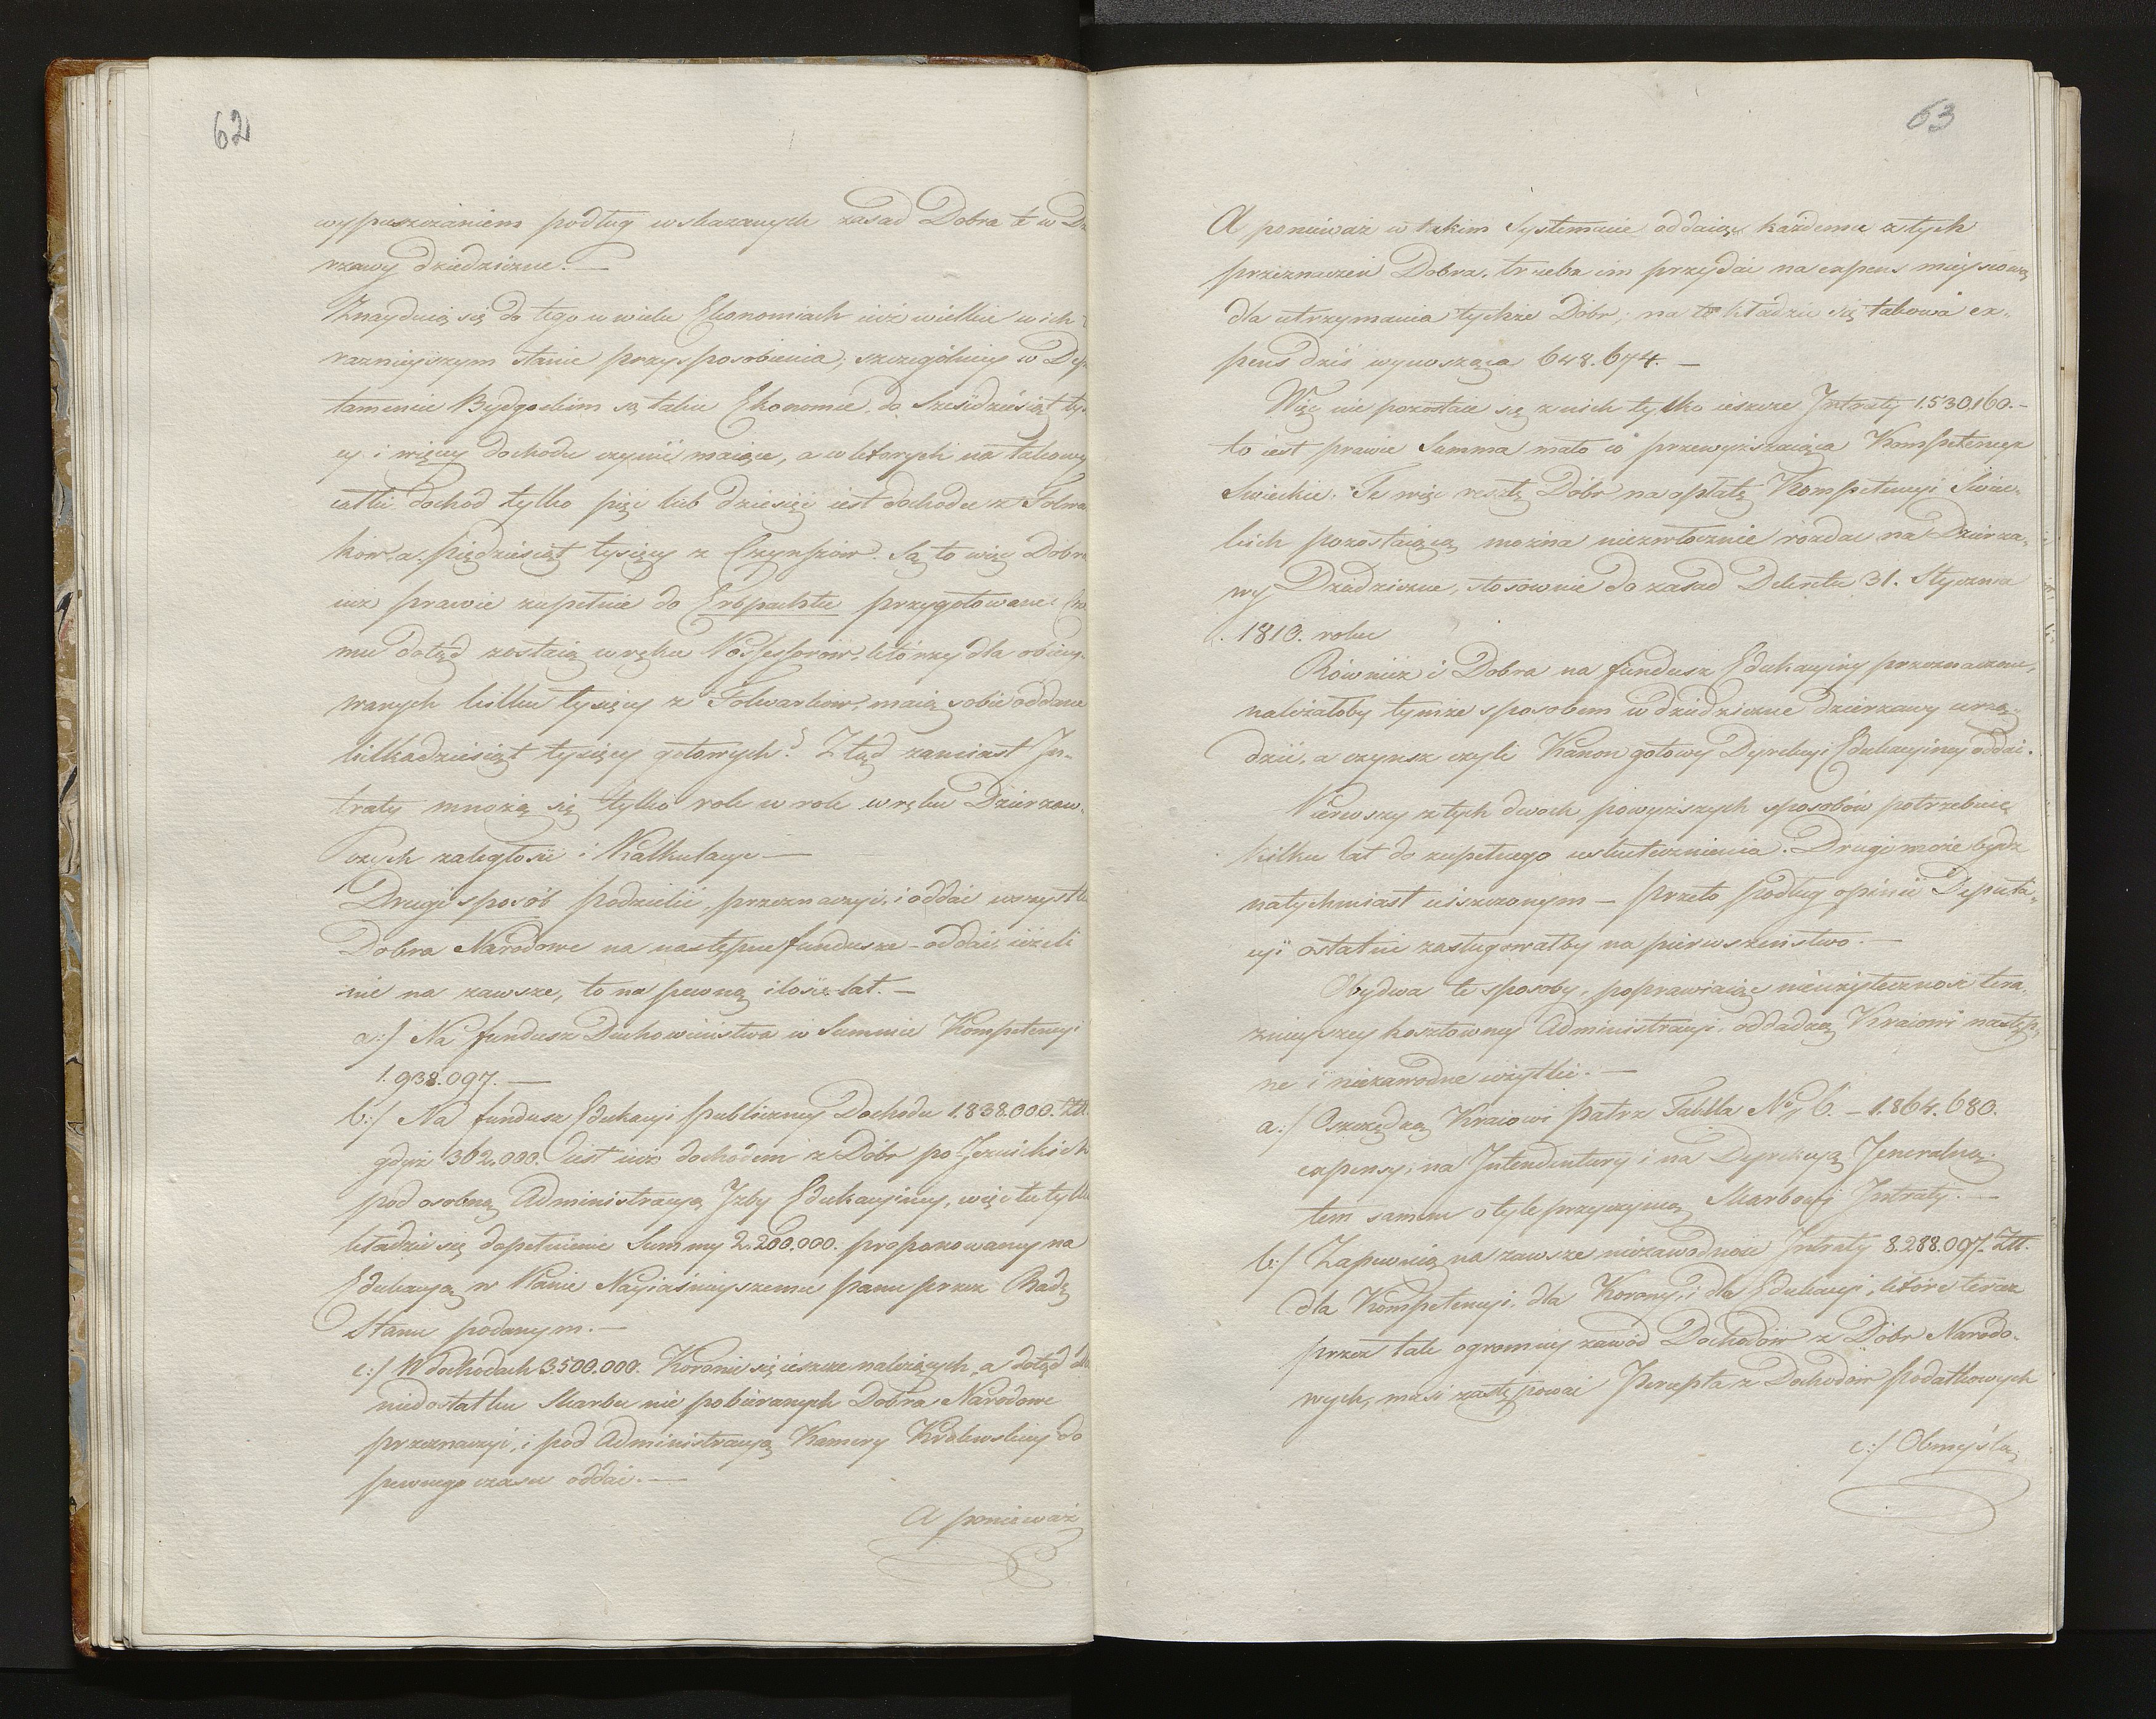 62
wypuszczaniem podług wskazanych zasad Dobra te w Dz
rzawy dziedziczne. —
Znayduią się do tego w wielu Ekonomiach iuż wielkie w ich
raznieyszym stanie przysposobienia; szczególniey w Dep
tamencie Bydgoskim są takie Ekonomie, do Sześćdziesiąt ty
cy i więcey dochodu czynić maiące, a w których na takowy
całki dochod tylko pięć lub dziesięć iest dochodu z Folwa
ków a. pięćdziesiąt tysięcy z Czynszów. Są to więc Dobra
iuż prawie zupełnie do Erbpachtu przygotowane. Cze
mu dotąd zostaią w ręku Possessorów, którzy dla obiecy-
wanych kilku tysięcy z Folwarków, maią sobie oddane
kilkadziesiąt tysięcy gotowych? Ztąd zamiast In-
traty mnożą się tylko rok w rok w ręku Dzierzaw-
czych zaległości i Kalkulacye —
Drugi sposób podzielić, przeznaczyć, i oddać wszystkie
Dobra Narodowe na następne fundusze — oddać, ieżeli
nie na zawsze, to na pewną ilość lat. —
a:/ Na fundusz Duchowieństwa w Summie Kompetencyi
1.938.097. —
b:/ Na fundusz Edukacyi publiczney Dochodu 1.838.000. Złł.
gdyż 362.000. iest iuż dochodem z Dóbr po-Jezuickich
pod osobną Administracyą Izby Edukacyiney, więc tu tylko
kładzie się dopełnienie Summy 2.200.000. proponowaney na
Edukacyą w Planie Nayiaśnieyszemu panu przez Radę
Stanu podanym. —
c:/ W dochodach 3.500.000. Koronie się ieszcze należących, a dotąd dla
niedostatku Skarbu nie pobieranych Dobra Narodowe
przeznaczyć, i pod Administracyą Kamery Królewskiey do
pewnego czasu oddać. —
A ponieważ
63
A ponieważ w takim Systemacie oddaiąc każdemu z tych
przeznaczeń Dobra, trzeba im przydać na expens mieyscową
dla utrzymania tychże Dóbr; na to kładzie się takowa ex-
pens dziś wynosząca 648.674. —
Więc nie pozostaie się z nich tylko ieszcze Intraty 1.530.160. —
to iest prawie Summa mało co przewyższaiąca Kompetencye
Swieckie. Te więc resztę Dóbr na opłatę Kompetencyi Swiec-
kich pozostaiącą można niezwłocznie rozdać na Dzierza-
wy Dziedziczne, stosownie do zasad Dekretu 31. Stycznia
1810. roku
Również i Dobra na fundusz Edukacyiny przeznaczone,
należałoby tymże sposobem w dziedziczne dzierzawy urzą-
dzić, a czynsz czyli Kanon gotowy Dyrekcyi Edukacyiney oddać.
Pierwszy z tych dwóch powyższych sposobów potrzebuie
kilku lat do zupełnego uskutecznienia. Drugi może bydz
natychmiast uiszczonym — przeto podług opinii Deputa-
cyi ostatni zasługiwałby na pierwszeństwo. —
Obydwa te sposoby, poprawiaiąc nieużyteczność tera-
znieyszey kosztowney Administracyi, oddadzą Kraiowi następ-
ne i niezawodne użytki. —
a:/ Oszczędzą Kraiowi patrz Tabella No 6. — 1.864.680.
expensy; na Intendentury i na Dyrekcyą Jeneralną;
tem samem o tyle przyczynią Skarbowi Intraty. —
b:/ Zapewnią na zawsze niezawodność Intraty 8.288.097. Złł.
dla Kompetencyi, dla Korony, i dla Edukacyi, które teraz
przez tak ogromny zawód Dochodów z Dóbr Narodo-
wych, musi zastępować Percepta z Dochodów podatkowych
c:/ Obmyślą